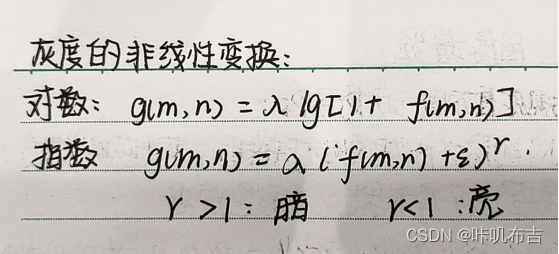 灰度的非线性变换:
对数: g(m,n) = λ lg[1+ f(m,n)]
指数 g(m,n) = λ (f(m,n) +ε)^r.
r >1: 暗 r<1 :亮
CSDN @咔叽布吉